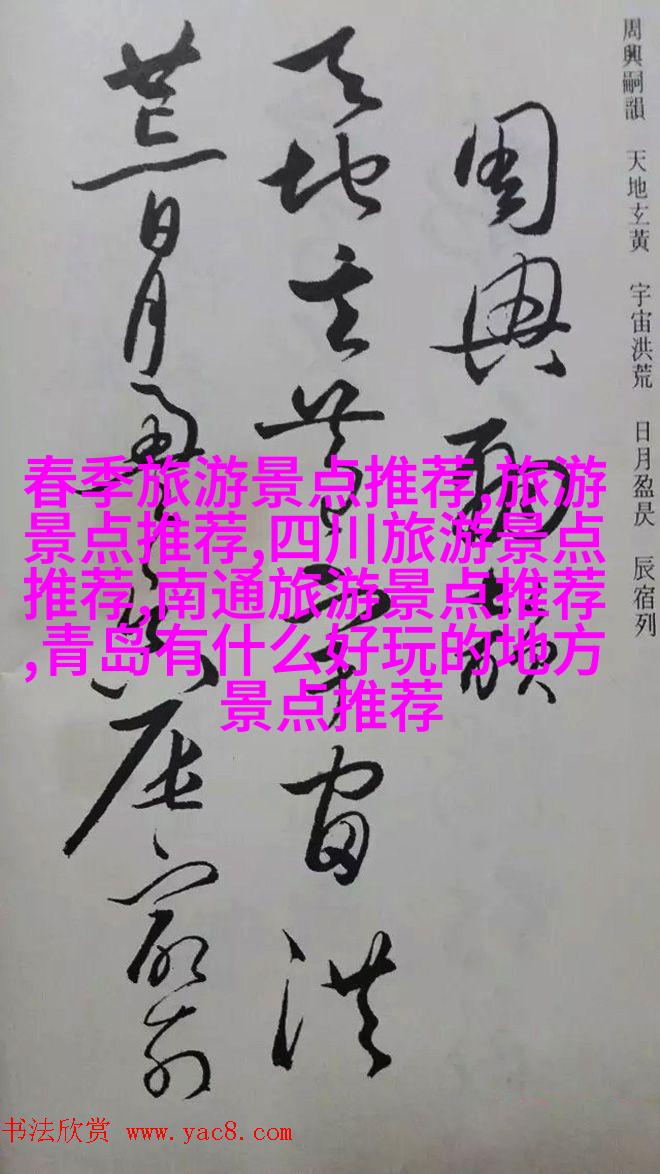 周興嗣韻 天地玄黃 宇宙洪荒 日月盈昃 辰宿列
周興嗣韻
天地玄黃宇宙洪
荒日月盈昃辰宿列
春季旅游景点推荐,旅游
景点推荐,四川旅游景点
推荐,南通旅游景点推荐
,青岛有什么好玩的地方
景点推荐
书法欣赏 www.yac8.com